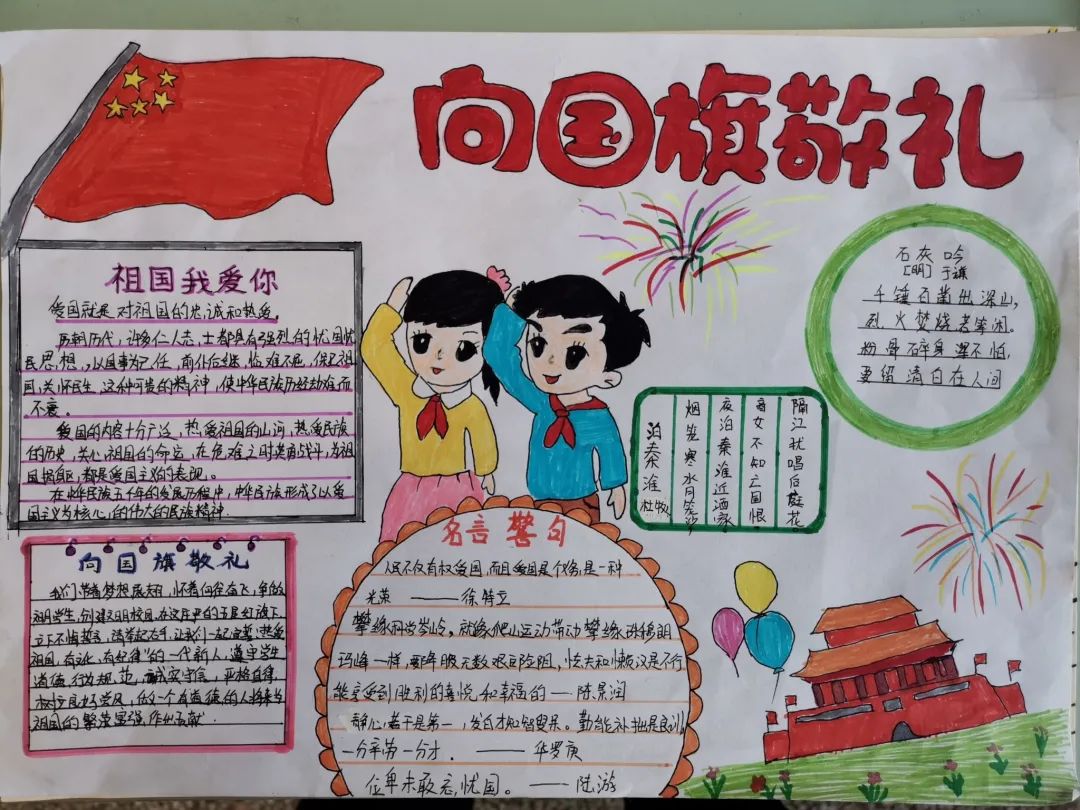 向国旗敬礼
祖国我爱你
爱国就是对祖国的忠诚和热爱。
历朝历代,许多仁人志士都具有强烈的忧国忧
民思想,以国事为己任,前仆后继,临难不屈,保卫祖
国,关怀民生,这种可贵的精神,使中华民族历经劫难而
不衰。
爱国的内容十分广泛,热爱祖国的山河,热爱民族
的历史,关心祖国的命运,在危难之时英勇战斗,为祖
国捐躯,都是爱国主义的表现。
在中华民族五千年的发展历程中,中华民族形成了以爱
国主义为核心的伟大的民族精神.
向国旗敬礼
我们带着梦想展翅,怀着向往奋飞,争做
祖学生,创建文明校园,在这庄严的五星红旗下,
立下不悔誓言,请举起右手,让我们一起宣誓:热爱
祖国,有文化,有纪律"的一代新人,遵守学生
道德行为规范,诚实守信,严格自律,
树立良好学风,做一个有道德的人,将来为
祖国的繁荣富强,作出贡献.
名言警句
人民不仅有权爱国,而且爱国是个义务,是一种
光荣 ——徐特立
攀缘科学岭,就像爬山运动带动攀缘珠穆朗
玛峰一样,要克服无数艰巨险阻,懦夫和懒汉是不行
能享受到胜利的喜悦和幸福的——陈景润
静心苦干是第一,发白才知智叟呆。勤能补拙是良训,
一分辛苦一分才. ——华罗庚
位卑未敢忘忧国。——陆游
泊秦淮
杜牧
烟笼寒水月笼沙
夜泊秦淮近酒家
商女不知亡国恨
隔江犹唱后庭花
石灰吟
[明]于谦
千锤万凿出深山,
烈火焚烧若等闲。
粉骨碎身浑不怕,
要留清白在人间